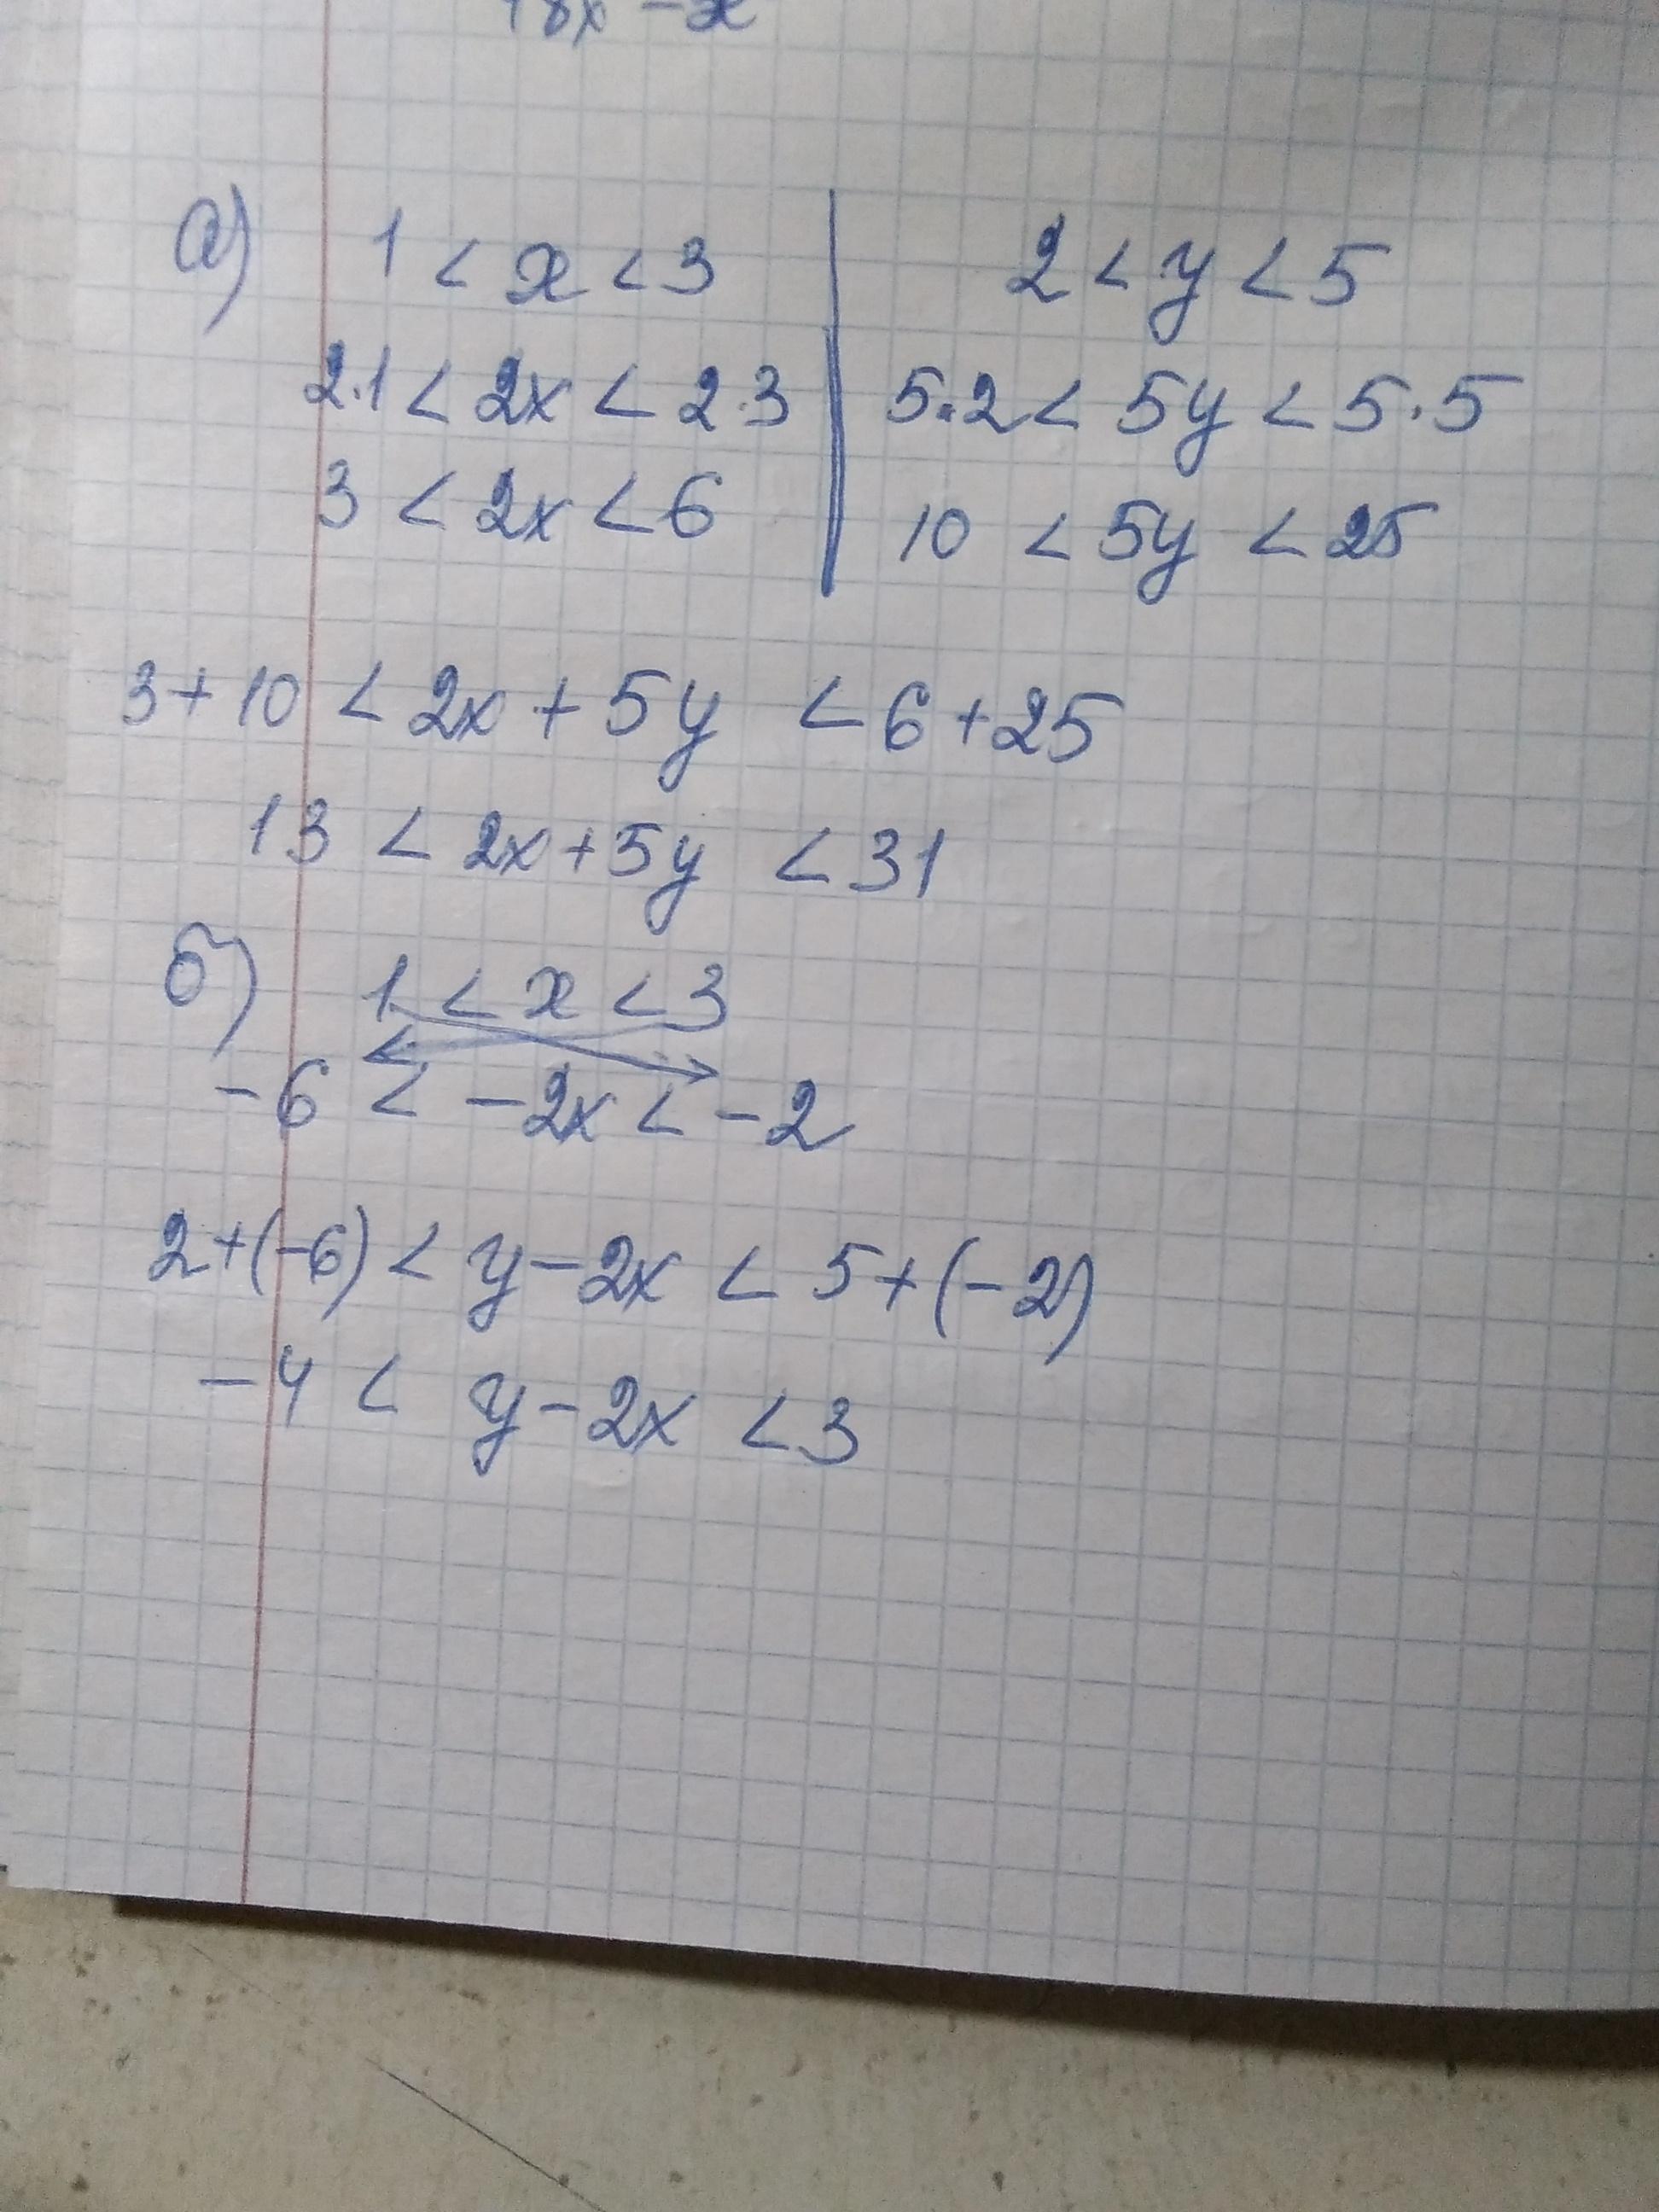 18x - x
а) 1 < x < 3 | 2 < y < 5
2·1 < 2x < 2·3 | 5·2 < 5y < 5·5
3 < 2x < 6 | 10 < 5y < 25
3 + 10 < 2x + 5y < 6 + 25
13 < 2x + 5y < 31
б) 1 < x < 3
-6 < -2x < -2
2 + (-6) < y - 2x < 5 + (-2)
-4 < y - 2x < 3